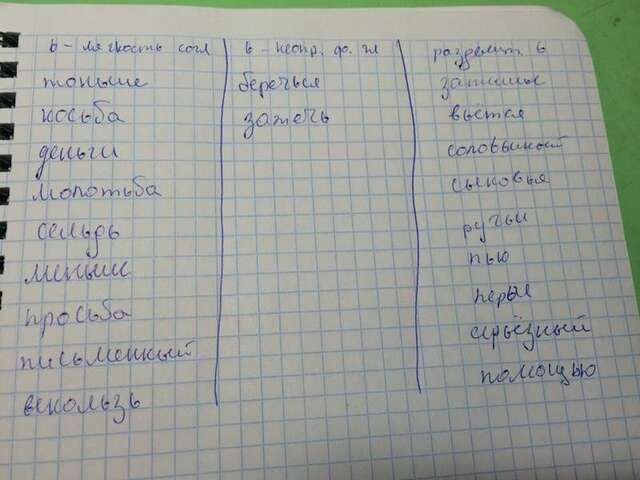 ь - мягкость согл
тоньше
косьба
деньги
молотьба
сельдь
меньше
просьба
письменный
вскользь
ь - неопр. ф. гл
беречься
зажечь
разделит. ь
затишье
вьётся
соловьиный
сыновья
ручьи
пью
перья
серьёзный
помощью